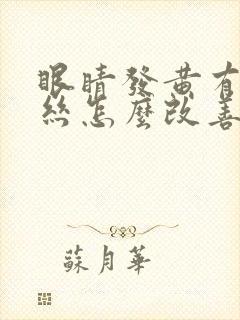 眼睛發黄有
絲怎麼改善
蘇月華